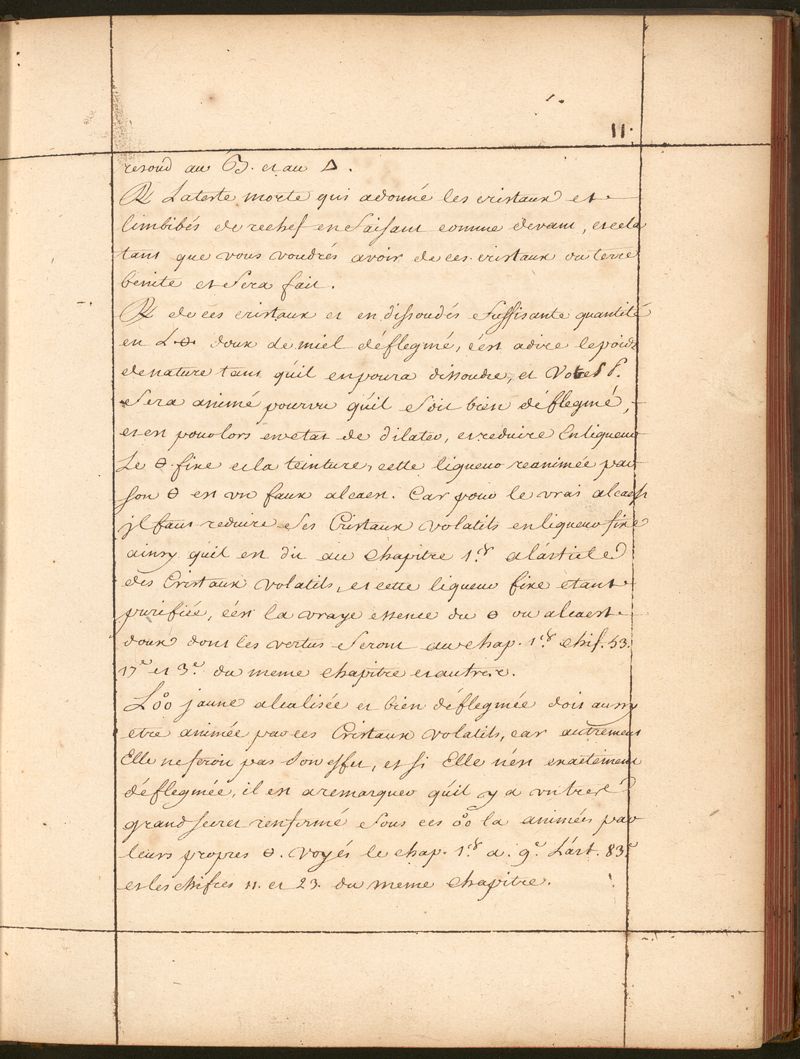 11.
resoud au B. et au △.
℞ La teste morte qui a donné les cristaux et
limbibés de rechef en faisant comme devant, et cela
tant que vous voudrés avoir de ces cristaux ou terre
benite et sera fait.
℞ de ces cristaux et en dissoudés suffisante quantité
en L🜔. doux de miel déflegmé, c'est a dire le poids
de nature tant qu'il en poura dissoudre, et
Sera animé pourvu qu'il soit bien deflegmé,
et est pour lors en etat de dilater, et reduire En liqueur
Le 🜔 fixe et la teinture, cette liqueur reanimée par
son 🜔 est un faux alcaest. Car pour le vrai alcaest
jl faut reduire ses Cristaux volatils en liqueur fixe
ainsy qu'il est dit au chapitre 1.er a l'article
des Cristaux volatils, et cette liqueur fixe etant
purifiée, c'est la vraye essence du 🜔 ou alcaest
doux dont les vertus seront au chap. 1.er chif. 53.
17.e et 3.e du meme chapitre et autres.
L'oo° jaune alcalisée et bien déflegmée doit aussy
etre animée par ces Cristaux volatils, car autrement
Elle ne feroit pas son effet, et si Elle n'est exactement
déflegmée, il est a remarquer qu'il y a un tres
grand secret renfermé sous ces oo° la animées par
leurs propres 🜔. voyés le chap. 1.er a. 9.e L'art. 83.e
et les chifres 11. et 23. du meme chapitre.